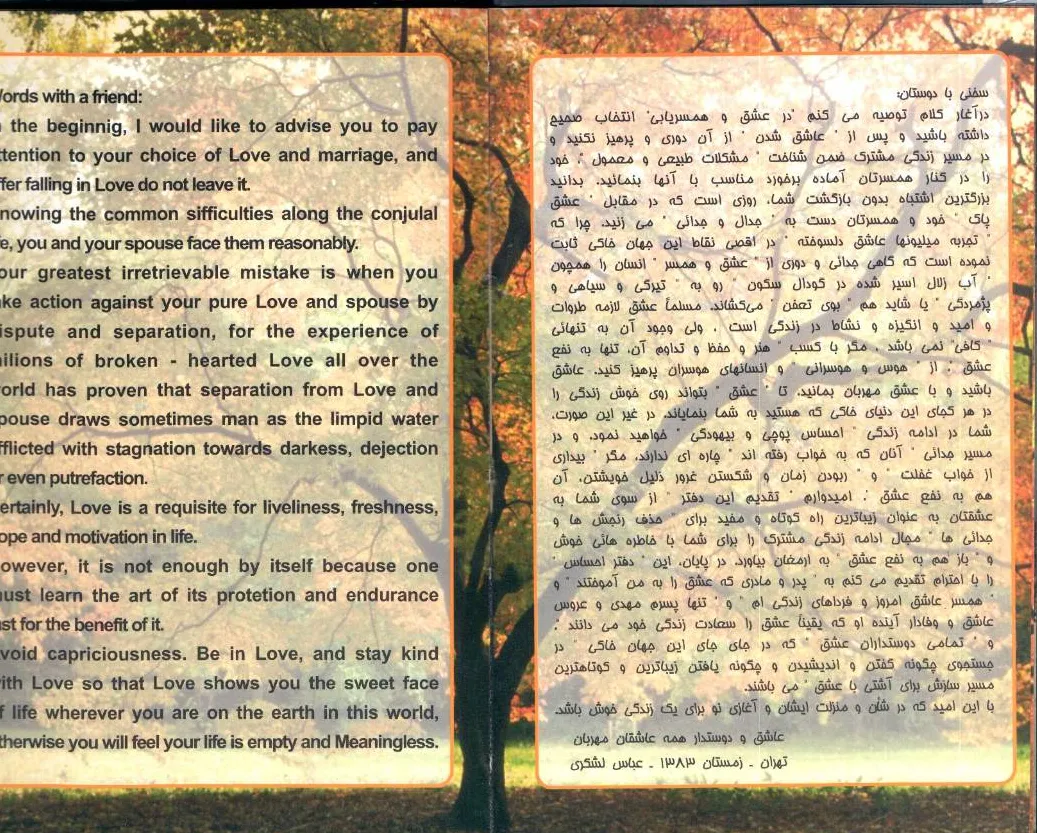 ords with a friend:
the beginnig, I would like to advise you to pay
ttention to your choice of Love and marriage, and
fer falling in Love do not leave it.
nowing the common sifficulties along the conjulal
e, you and your spouse face them reasonably.
our greatest irretrievable mistake is when you
ke action against your pure Love and spouse by
ispute and separation, for the experience of
illions of broken - hearted Love all over the
orld has proven that separation from Love and
pouse draws sometimes man as the limpid water
fflicted with stagnation towards darkess, dejection
r even putrefaction.
ertainly, Love is a requisite for liveliness, freshness,
ope and motivation in life.
owever, it is not enough by itself because one
ust learn the art of its protetion and endurance
st for the benefit of it.
void capriciousness. Be in Love, and stay kind
ith Love so that Love shows you the sweet face
f life wherever you are on the earth in this world,
therwise you will feel your life is empty and Meaningless.
سخنی با دوستان:
درآغاز کلام توصیه می کنم "در عشق و همسریابی" انتخاب صحیح
داشته باشید و پس از " عاشق شدن " از آن دوری و پرهیز نکنید و
در مسیر زندگی مشترک ضمن شناخت " مشکلات طبیعی و معمول "، خود
را در کنار همسرتان آماده برخورد مناسب با آنها بنمائید. بدانید
بزرگترین اشتباه بدون بازگشت شما، روزی است که در مقابل " عشق
پاک " خود و همسرتان دست به " جدال و جدائی " می زنید. چرا که
" تجربه میلیونها عاشق دلسوخته " در اقصی نقاط این جهان خاکی ثابت
نموده است که گاهی جدائی و دوری از " عشق و همسر " انسان را همچون
" آب زلال اسیر شده در گودال سکون " رو به " تیرگی و سیاهی و
پژمردگی " یا شاید هم " بوی تعفن " می‌کشاند. مسلماً عشق لازمه طروات
و امید و انگیزه و نشاط در زندگی است ، ولی وجود آن به تنهائی
" کافی" نمی باشد ، مگر با کسب " هنر و حفظ و تداوم آن، تنها به نفع
عشق ". از " هوس و هوسرانی " و انسانهای هوسران پرهیز کنید. عاشق
باشید و با عشق مهربان بمانید، تا " عشق " بتواند روی خوش زندگی را
در هر کجای این دنیای خاکی که هستید به شما بنمایاند، در غیر این صورت،
شما در ادامه زندگی " احساس پوچی و بیهودگی " خواهید نمود. و در
مسیر جدائی " آنان که به خواب رفته اند " چاره ای ندارند، مگر " بیداری
از خواب غفلت " و " ربودن زمان و شکستن غرور ذلیل خویشتن، آن
هم به نفع عشق ". امیدوارم " تقدیم این دفتر " از سوی شما به
عشقتان به عنوان زیباترین راه کوتاه و مفید برای " حذف رنجش ها و
جدائی ها " مجال ادامه زندگی مشترک را برای شما با خاطره هائی خوش
و " باز هم به نفع عشق " به ارمغان بیاورد. در پایان، این " دفتر احساس "
را با احترام تقدیم می کنم به " پدر و مادری که عشق را به من آموختند " و
" همسر عاشق امروز و فرداهای زندگی ام " و " تنها پسرم مهدی و عروس
عاشق و وفادار آینده او که یقیناً عشق را سعادت زندگی خود می دانند ".
و " تمامی دوستداران عشق " که در جای جای این جهان خاکی " در
جستجوی چگونه گفتن و اندیشیدن و چگونه یافتن زیباترین و کوتاهترین
مسیر سازش برای آشتی با عشق " می باشند.
با این امید که در شان و منزلت ایشان و آغازی نو برای یک زندگی خوش باشد.
عاشق و دوستدار همه عاشقان مهربان
تهران ـ زمستان ۱۳۸۳ ـ عباس لشکری